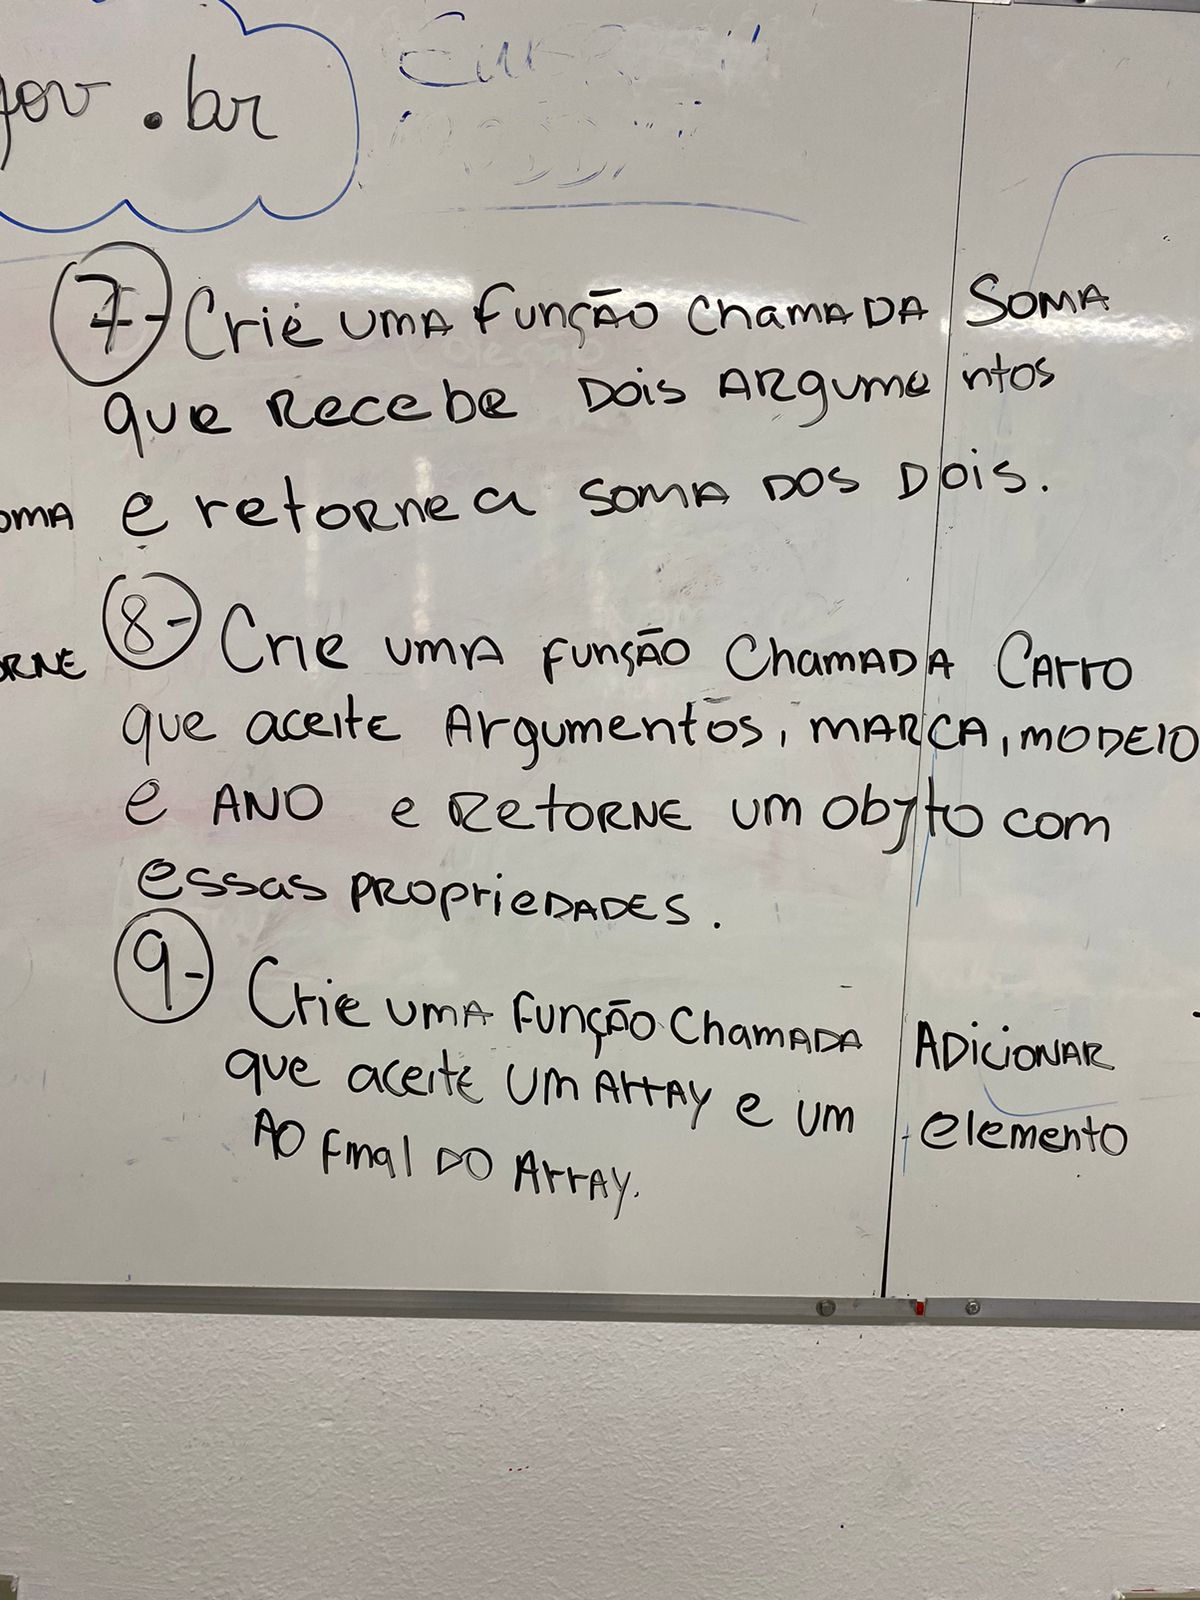 .br
7- Crie uma função chamada Soma
que recebe dois argumentos
e retorne a soma dos dois.
8- Crie uma função chamada Carro
que aceite Argumentos, marca, modelo
e ANO e Retorne um objto com
essas propriedades.
9- Crie uma função chamada Adicionar
que aceite um Array e um elemento
Ao final do Array.
OMA
ORNE